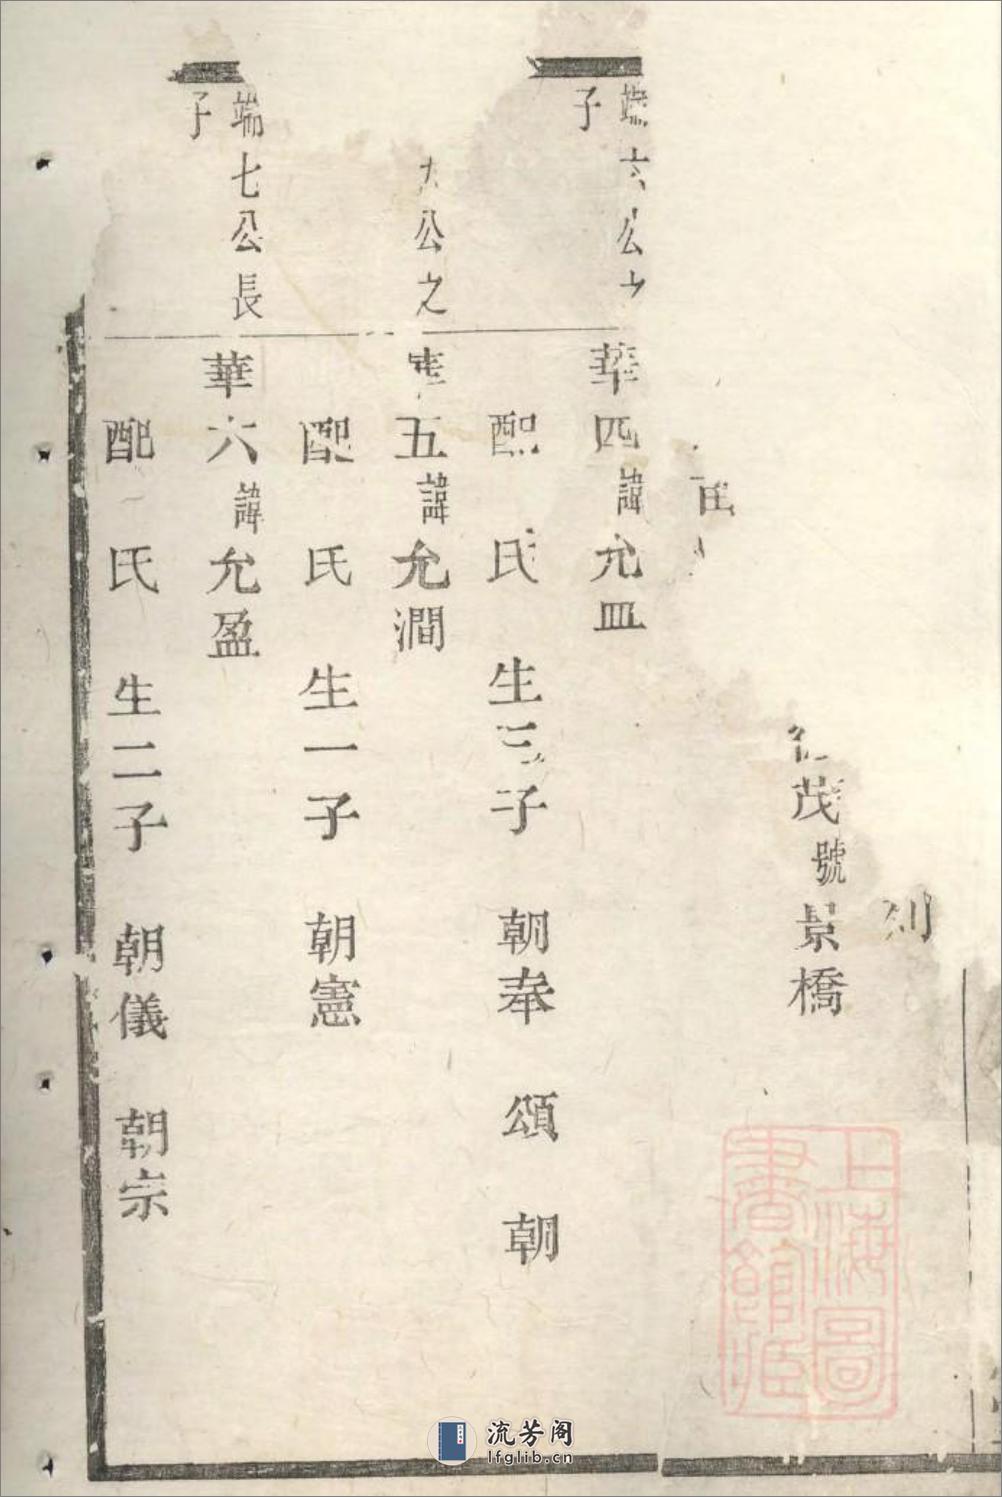 茂號景橋
端六公之
子
華四諱允
配 氏 生三子 朝奉 頌 朝
公之
五諱允澗
配 氏 生一子 朝憲
端七公長
子
華六諱允盈
配 氏 生二子 朝儀 朝宗
上海圖
書館
流芳阁
lfglib.cn